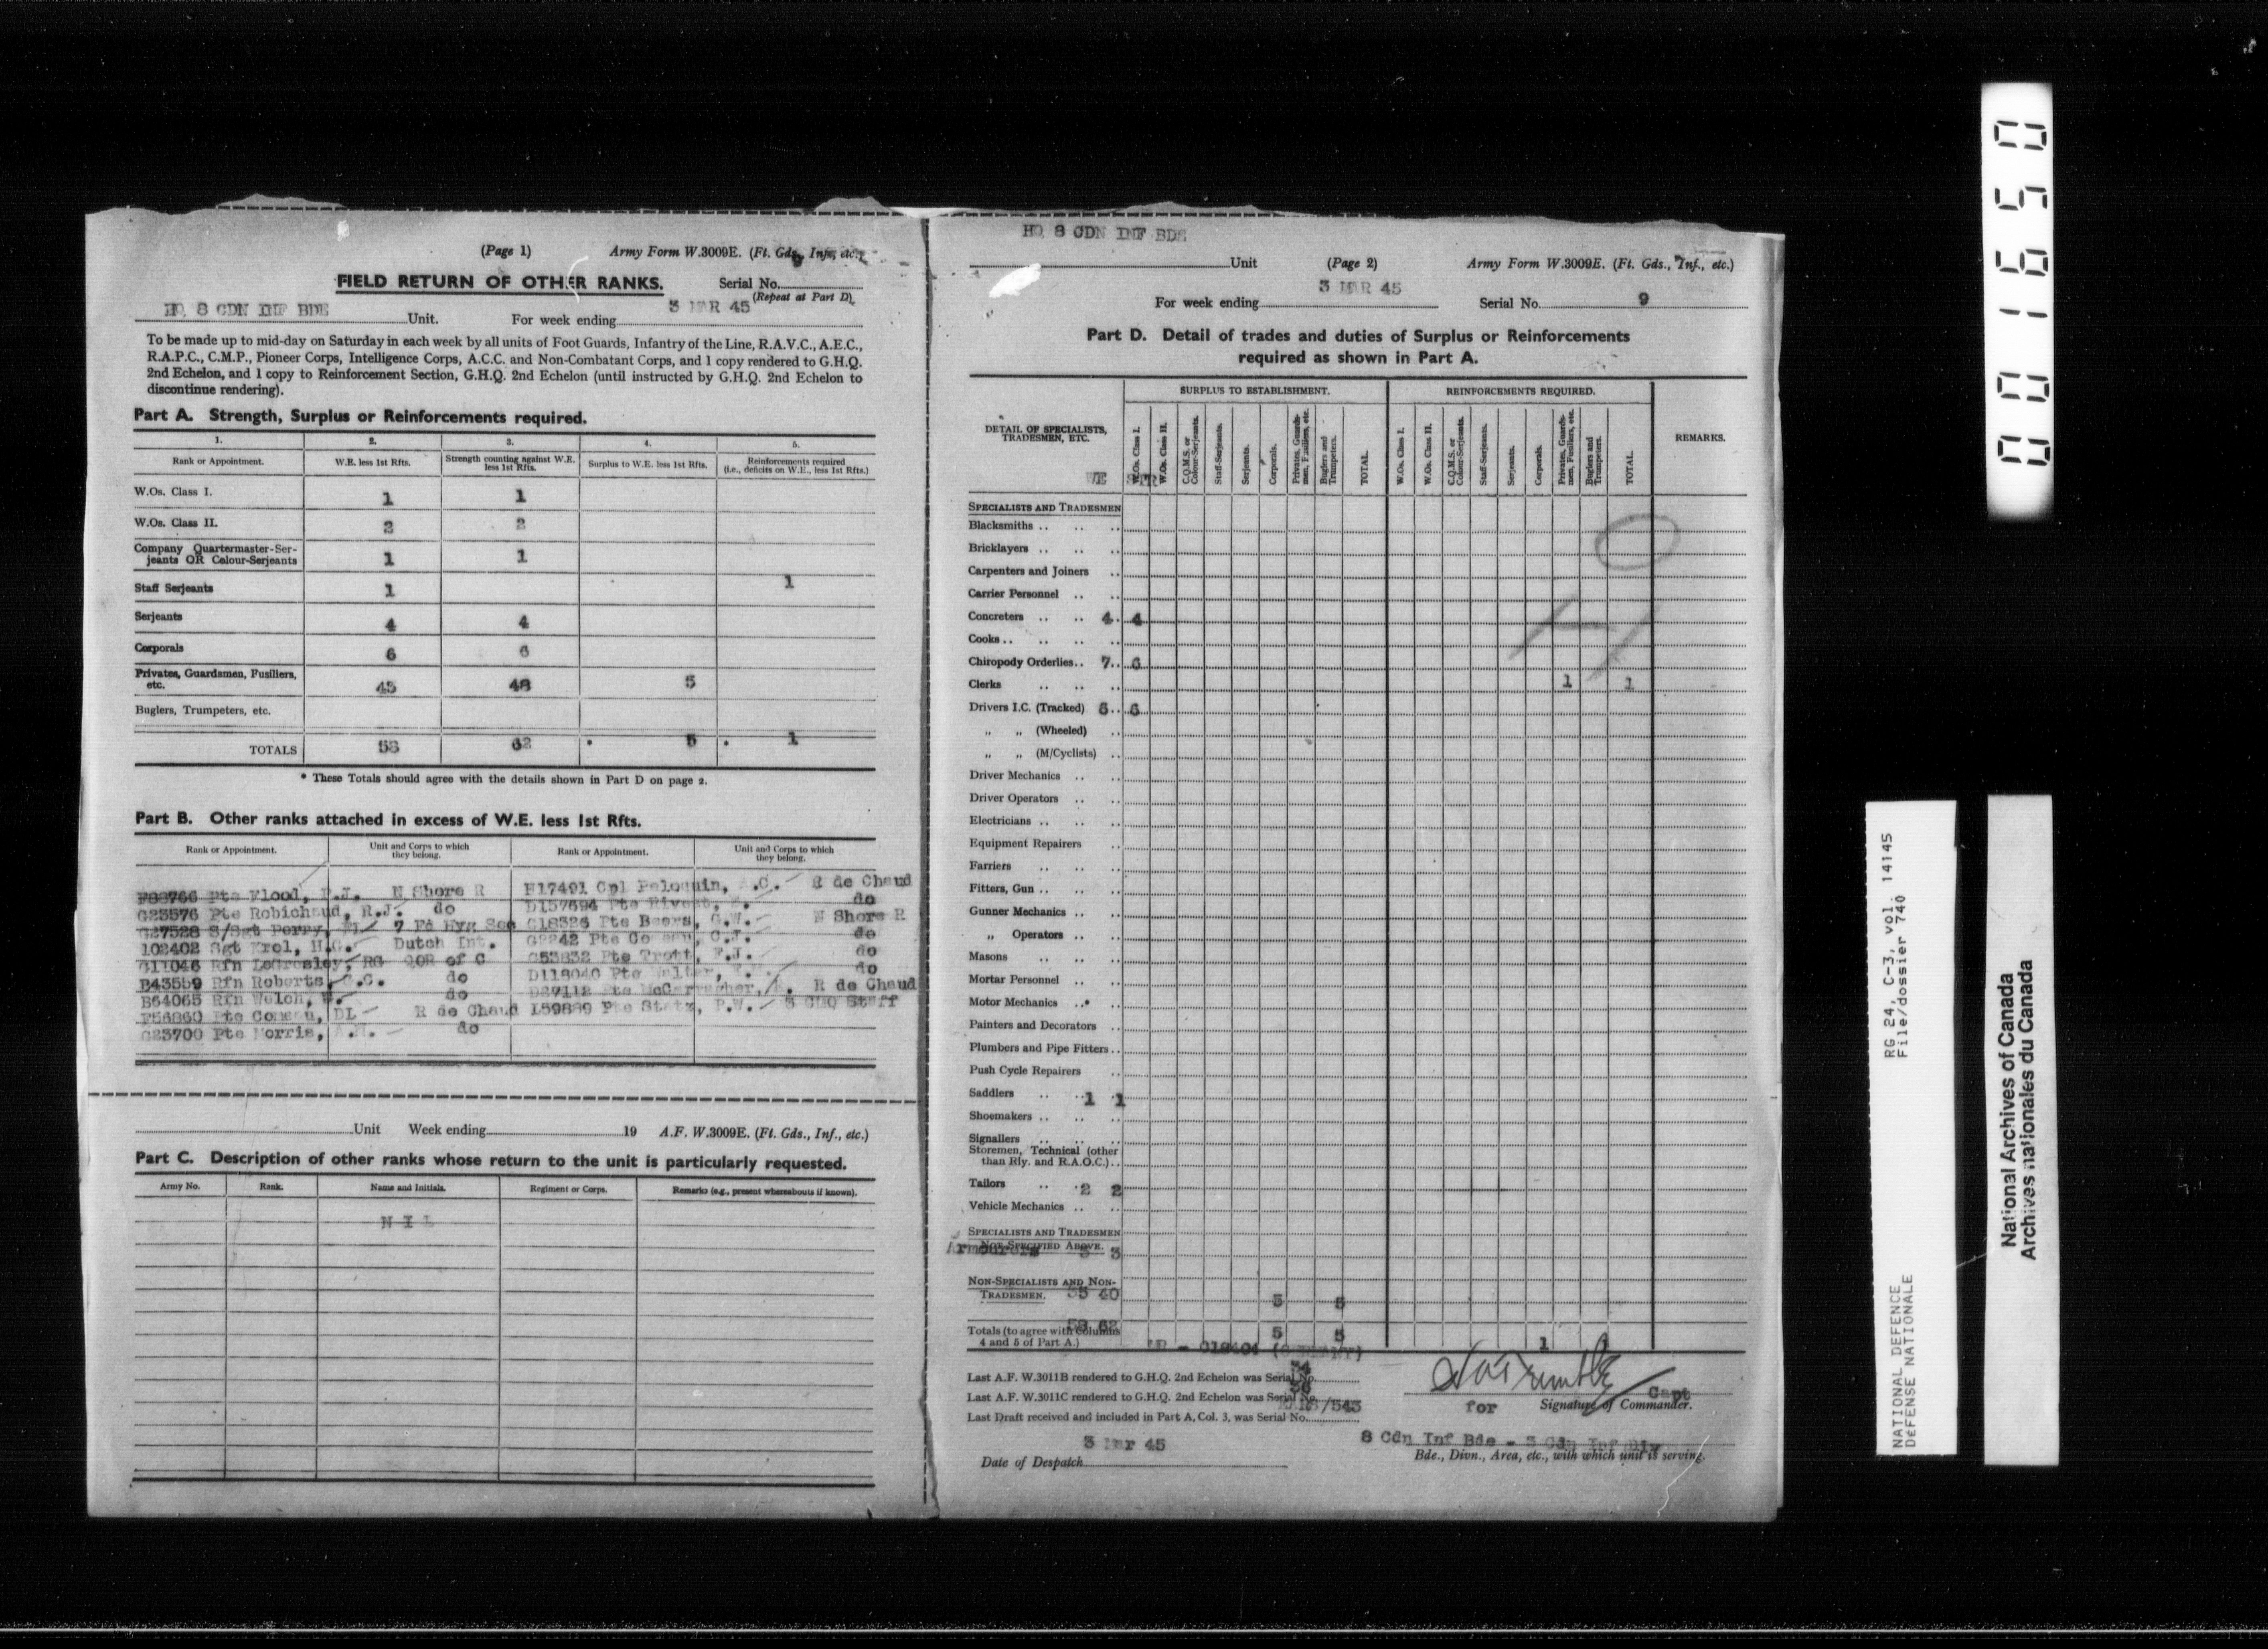 (Page 1) Army Form W.3009E. (Ft. Gds., Inf., etc.)
FIELD RETURN OF OTHER RANKS. Serial No.
(Repeat at Part D)
HQ 8 CDN INF BDE Unit. For week ending 3 MAR 45
To be made up to mid-day on Saturday in each week by all units of Foot Guards, Infantry of the Line, R.A.V.C., A.E.C.,
R.A.P.C., C.M.P., Pioneer Corps, Intelligence Corps, A.C.C. and Non-Combatant Corps, and 1 copy rendered to G.H.Q.
2nd Echelon, and 1 copy to Reinforcement Section, G.H.Q. 2nd Echelon (until instructed by G.H.Q. 2nd Echelon to
discontinue rendering).
Part A. Strength, Surplus or Reinforcements required.
1. 2. 3. 4. 5.
Rank or Appointment. W.E. less 1st Rfts. Strength counting against W.E. less 1st Rfts. Surplus to W.E. less 1st Rfts. Reinforcements required (i.e., deficits on W.E., less 1st Rfts.)
W.Os. Class I. 1 1
W.Os. Class II. 2 2
Company Quartermaster-Ser-
jeants OR Colour-Serjeants 1 1
Staff Serjeants 1 1
Serjeants 4 4
Corporals 6 6
Privates, Guardsmen, Fusiliers,
etc. 43 48 5
Buglers, Trumpeters, etc.
TOTALS 58 62 * 5 * 1
* These Totals should agree with the details shown in Part D on page 2.
Part B. Other ranks attached in excess of W.E. less 1st Rfts.
Rank or Appointment. Unit and Corps to which they belong. Rank or Appointment. Unit and Corps to which they belong.
Pte Flood, N Shore R Cpl Peloquin, R de Chaud
G23576 Pte Robichaud, R.J. do D157694 Pte Rivest, do
G27528 S/Sgt Perry, 7 Fd Hyg Sec G18326 Pte Beers, G.W. N Shore R
102402 Sgt Krol, H.G. Dutch Int. Pte C.J. do
G11046 Rfn LeGresley, RG QOR of C G53832 Pte Trott, F.J. do
B43559 Rfn Roberts, do D118040 Pte Walter, do
B64065 Rfn Welch, do Pte McCarragher, R de Chaud
Pte Comeau, DL R de Chaud L59889 Pte P.W. Staff
G23700 Pte Morris, do
Unit Week ending 19 A.F. W.3009E. (Ft. Gds., Inf., etc.)
Part C. Description of other ranks whose return to the unit is particularly requested.
Army No. Rank. Name and Initials. Regiment or Corps. Remarks (e.g., present whereabouts if known).
N I L
HQ 8 CDN INF BDE
Unit (Page 2) Army Form W.3009E. (Ft. Gds., Inf., etc.)
For week ending 3 MAR 45 Serial No. 9
Part D. Detail of trades and duties of Surplus or Reinforcements
required as shown in Part A.
SURPLUS TO ESTABLISHMENT. REINFORCEMENTS REQUIRED.
DETAIL OF SPECIALISTS, TRADESMEN, ETC. W.Os. Class I. W.Os. Class II. C.Q.M.S. or Colour-Serjeants. Staff-Serjeants. Serjeants. Corporals. Privates, Guardsmen, Fusiliers, etc. Buglers and Trumpeters. TOTAL. W.Os. Class I. W.Os. Class II. C.Q.M.S. or Colour-Serjeants. Staff-Serjeants. Serjeants. Corporals. Privates, Guardsmen, Fusiliers, etc. Buglers and Trumpeters. TOTAL. REMARKS.
WE STR
SPECIALISTS AND TRADESMEN
Blacksmiths
Bricklayers
Carpenters and Joiners
Carrier Personnel
Concreters 4 4
Cooks
Chiropody Orderlies 7 6
Clerks 1 1
Drivers I.C. (Tracked) 6 6
„ „ (Wheeled)
„ „ (M/Cyclists)
Driver Mechanics
Driver Operators
Electricians
Equipment Repairers
Farriers
Fitters, Gun
Gunner Mechanics
„ Operators
Masons
Mortar Personnel
Motor Mechanics
Painters and Decorators
Plumbers and Pipe Fitters
Push Cycle Repairers
Saddlers 1 1
Shoemakers
Signallers
Storemen, Technical (other
than Rly. and R.A.O.C.)
Tailors 2 2
Vehicle Mechanics
SPECIALISTS AND TRADESMEN
NOT SPECIFIED ABOVE.
Armourers 3 3
NON-SPECIALISTS AND NON-
TRADESMEN. 35 40 5 5
Totals (to agree with Columns
4 and 5 of Part A.) 58 62 5 5 1
Last A.F. W.3011B rendered to G.H.Q. 2nd Echelon was Serial No. 34
Last A.F. W.3011C rendered to G.H.Q. 2nd Echelon was Serial No. 36
Last Draft received and included in Part A, Col. 3, was Serial No. /543
Capt
for Signature of Commander.
3 Mar 45
Date of Despatch
8 Cdn Inf Bde - 3 Cdn Inf Div
Bde., Divn., Area, etc., with which unit is serving.
001650
RG 24, C-3, vol. 14145
File/dossier 740
NATIONAL DEFENCE
DÉFENSE NATIONALE
National Archives of Canada
Archives nationales du Canada